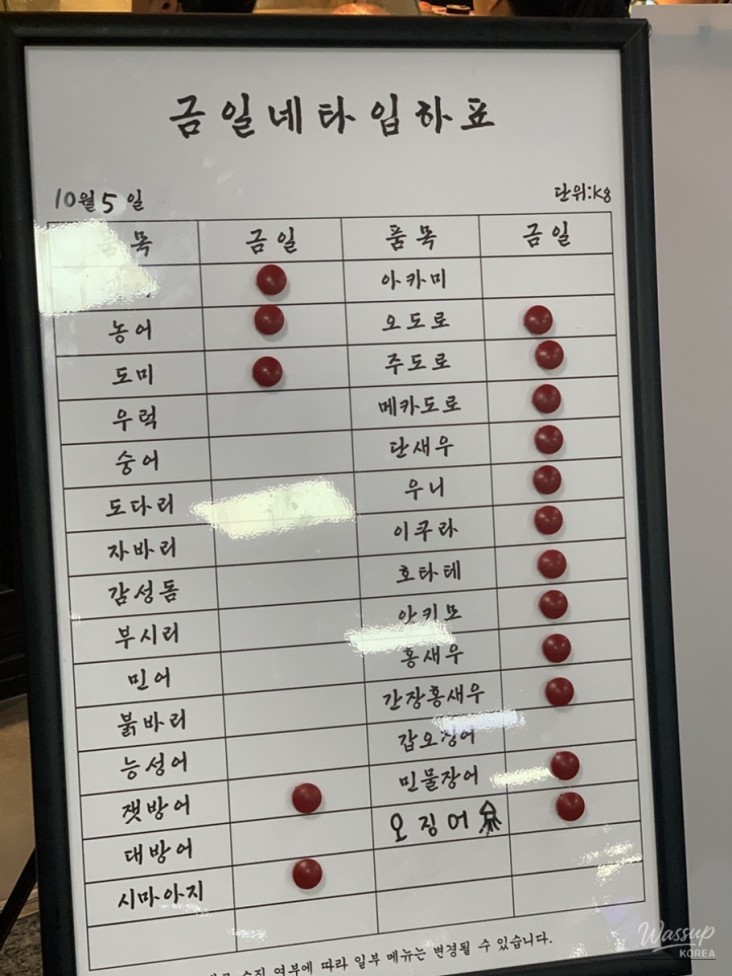 금일네타입하표
10월 5일 단위:kg
품목 금일 품목 금일
아카미
농어 오도로
도미 주도로
우럭 메카도로
숭어 단새우
도다리 우니
자바리 이쿠라
감성돔 호타테
부시리 안키모
민어 홍새우
붉바리 간장홍새우
능성어 갑오징어
잿방어 민물장어
대방어 오징어
시마아지
수직 여부에 따라 일부 메뉴는 변경될 수 있습니다.
Wassup
KOREA